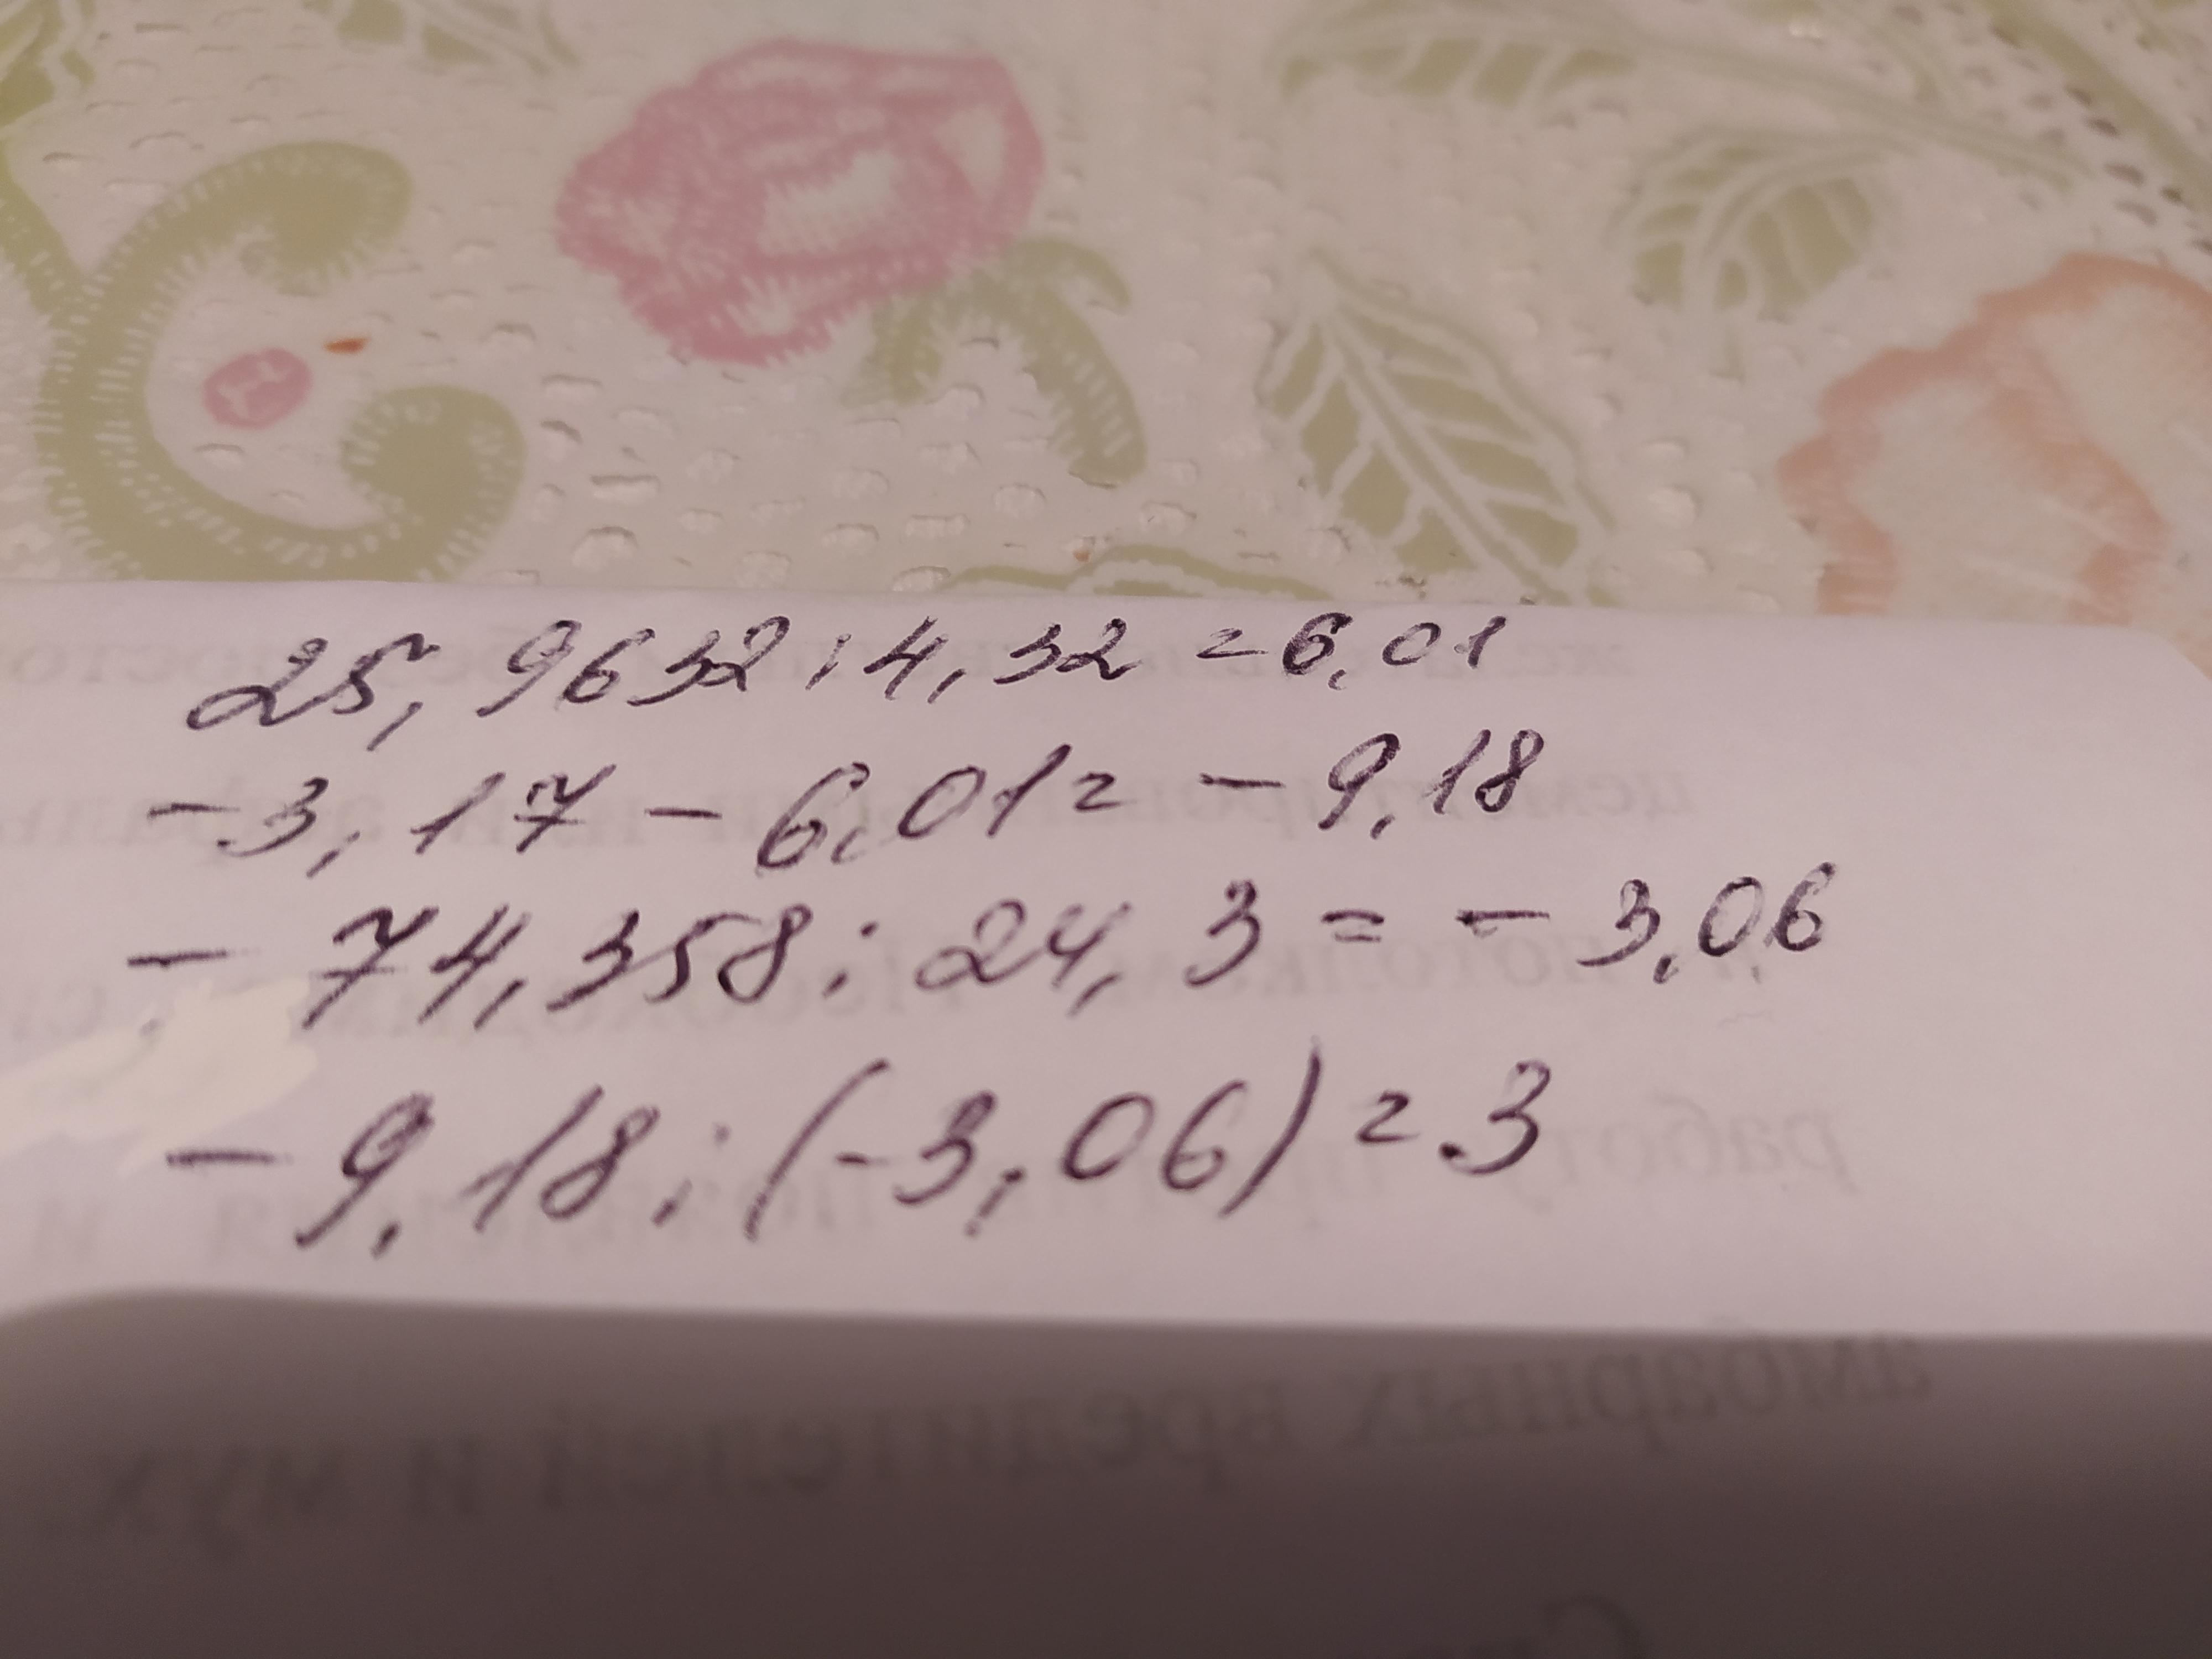 25,9632:4,32=6,01
-3,17-6,01=-9,18
-74,358:24,3=-3,06
-9,18:(-3,06)=3
работу
амбарных вредителей и мух